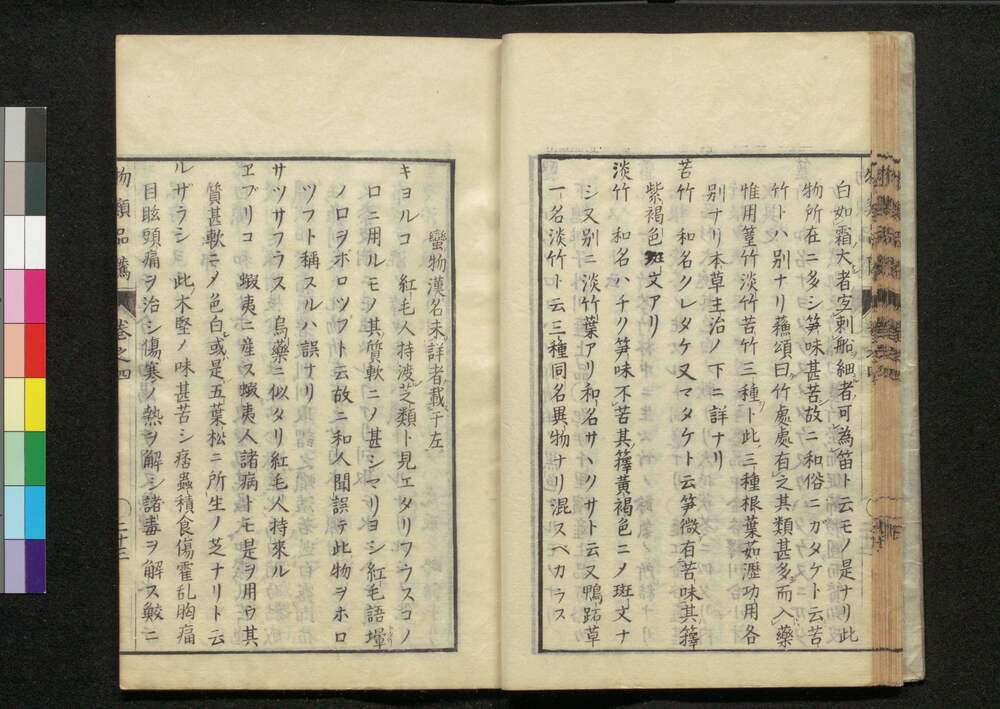 白如霜大者宐刺船細者可為笛ト云モノ是ナリ此
物所在ニ多シ笋味甚苦故ニ和俗ニガタケト云苦
竹トハ別ナリ蘓頌曰竹處處有之其類甚多而入藥
惟用篁竹淡竹苦竹三種ト此三種根葉茹瀝功用各
別ナリ本草主治ノ下ニ詳ナリ
苦竹 和名クレタケ又マタケト云笋微有苦味其籜
紫褐色斑文アリ
淡竹 和名ハチク笋味不苦其籜黄褐色ニ〆斑文ナ
シ又別ニ淡竹葉アリ和名サヽノサト云又鴨跖草
一名淡竹ト云三種同名異物ナリ混スベカラス
蠻物漢名未詳者載于左
キヨルコ 紅毛人持渡芝類ト見エタリフウスコノ
ロニ用ルモノ其質軟ニ〆甚シマリヨシ紅毛語壜
ノロヲホロツフト云故ニ和人聞誤テ此物ヲホロ
ツフト稱スルハ誤ナリ
サツサフラス 烏藥ニ似タリ紅毛人持來ル
ヱブリコ 蝦夷ニ産ス蝦夷人諸病トモ是ヲ用ウ其
質甚軟ニ〆色白或是五葉松ニ所生ノ芝ナリト云
ルザラシ 此木堅〆味甚苦シ痞蟲積食傷霍乱胸痛
目眩頭痛ヲ治シ傷寒ノ熱ヲ解シ諸毒ヲ解ス鮫ニ
物類品隲 卷之四 二十三